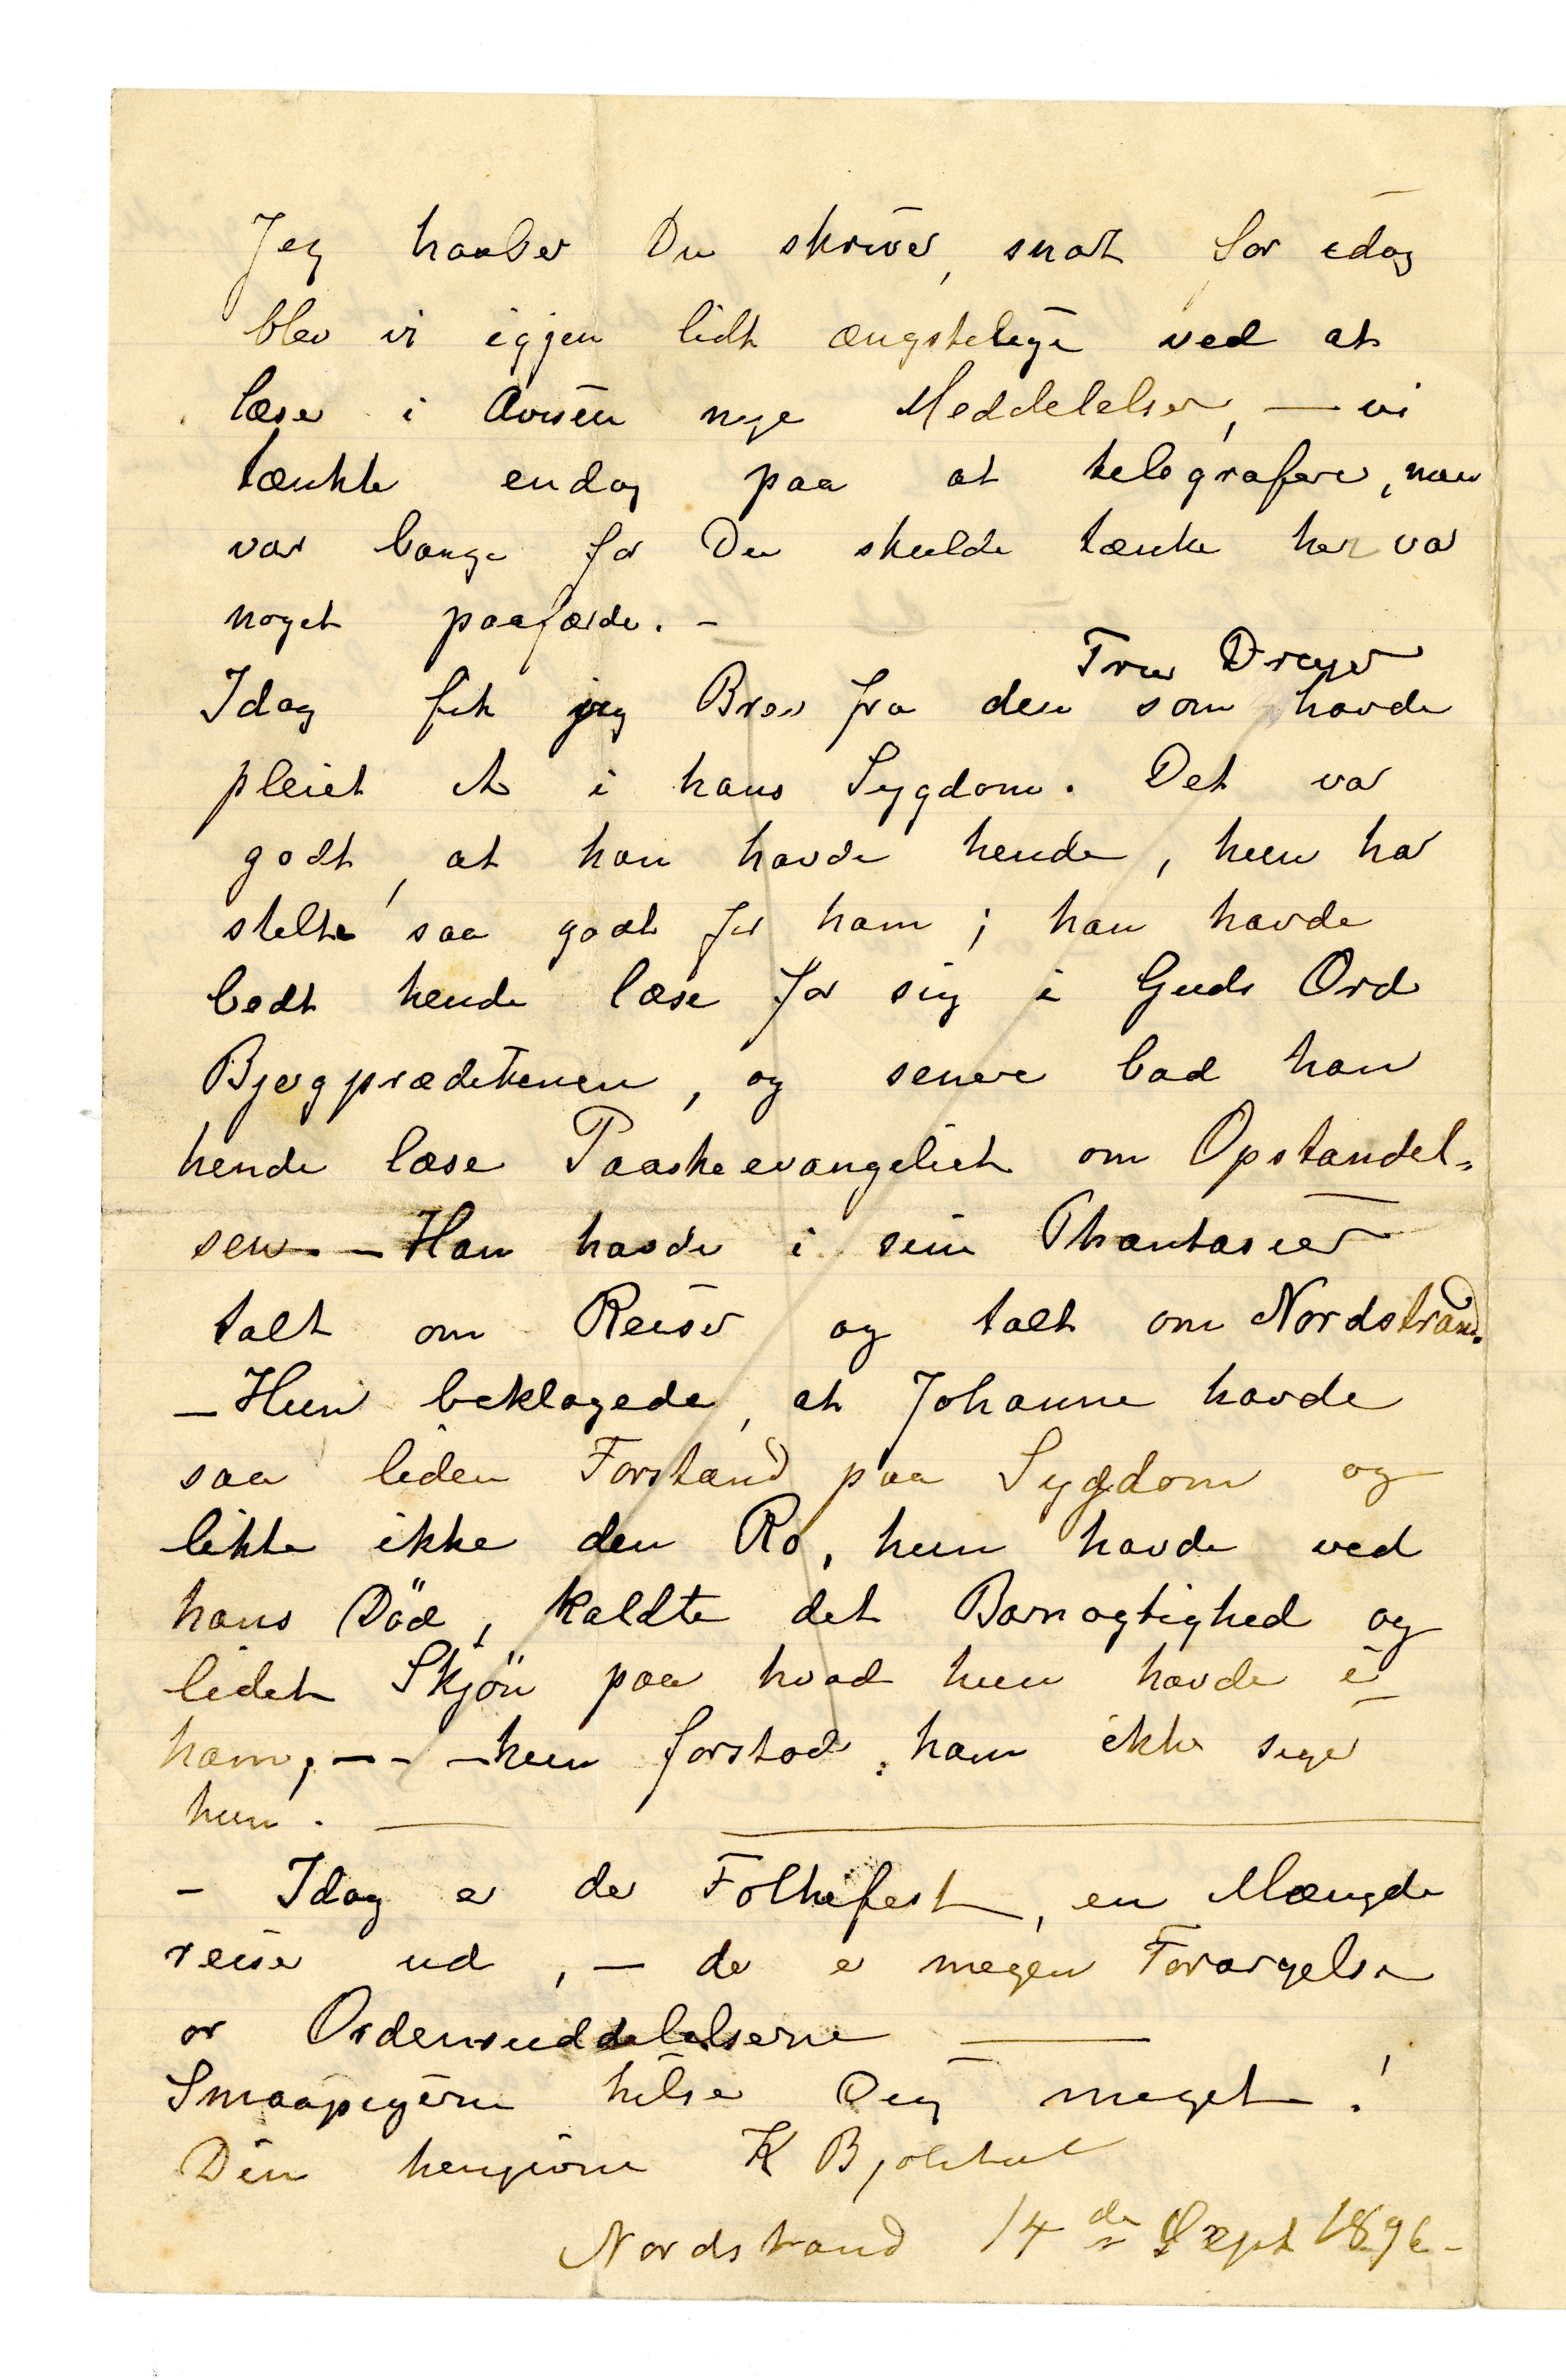 Jeg haaber Du skriver, snart for idag
blev vi igjen lidt ængstelige ved at
læse i Avisen nye Meddelelser, — vi
tænkte endog paa at telegrafere, men
var bange for Du skulde tænke her var
noget paafærde. -
Fru Dreyer
Idag fik jeg Brev fra den som havde
pleiet A i hans Sygdom. Det var
godt, at han havde hende, hun har
stelte saa godt for ham; han havde
bedt hende læse for sig i Guds Ord
Bjergprædikenen, og senere bad han
hende læse Paaskeevangeliet om Opstandel-
sen. - Han havde i sine Phantasier
talt om Reiser og talt om Nordstrand.
- Hun beklagede, at Johanne havde
saa liden Forstand paa Sygdom og
likte ikke den Ro, hun havde ved
hans Död, kaldte det Barnagtighed og
lidet Skjön paa hvad hun havde i
ham; - - - hun forstod ham ikke siger
hun. —
- Idag er der Folkefest, en Mængde
reiser ud, — der er megen Forargelse
or Ordensuddelelserne —
Smaapigerne hilser Dig meget!
Din hengivne K
Nordstrand 14de Sept 1896 -